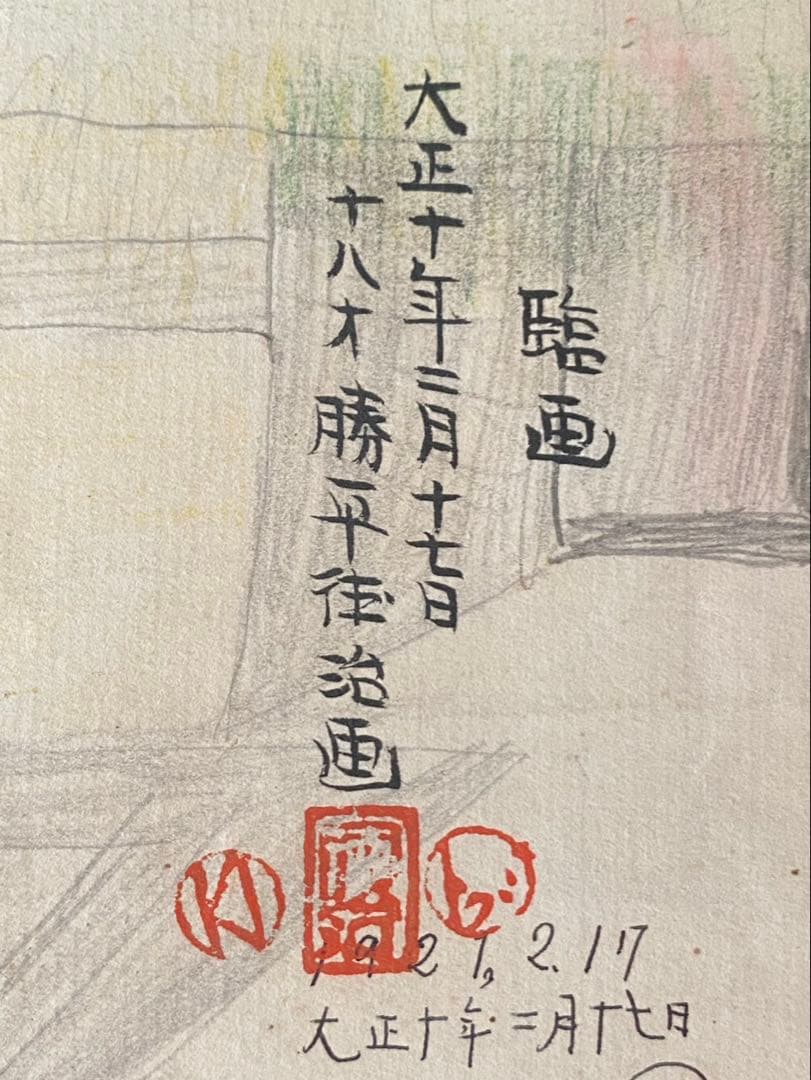 臨画
大正十年二月十七日
十八才 勝平徳治画
1921, 2.17
大正十年二月十七日